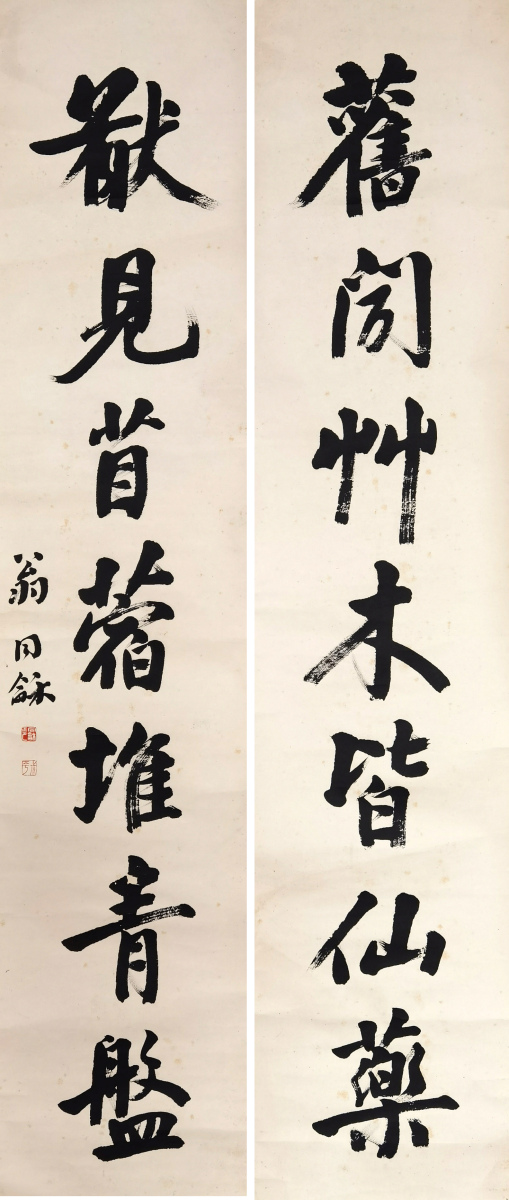 舊聞艸木皆仙藥
猒見苜蓿堆青盤
翁同龢